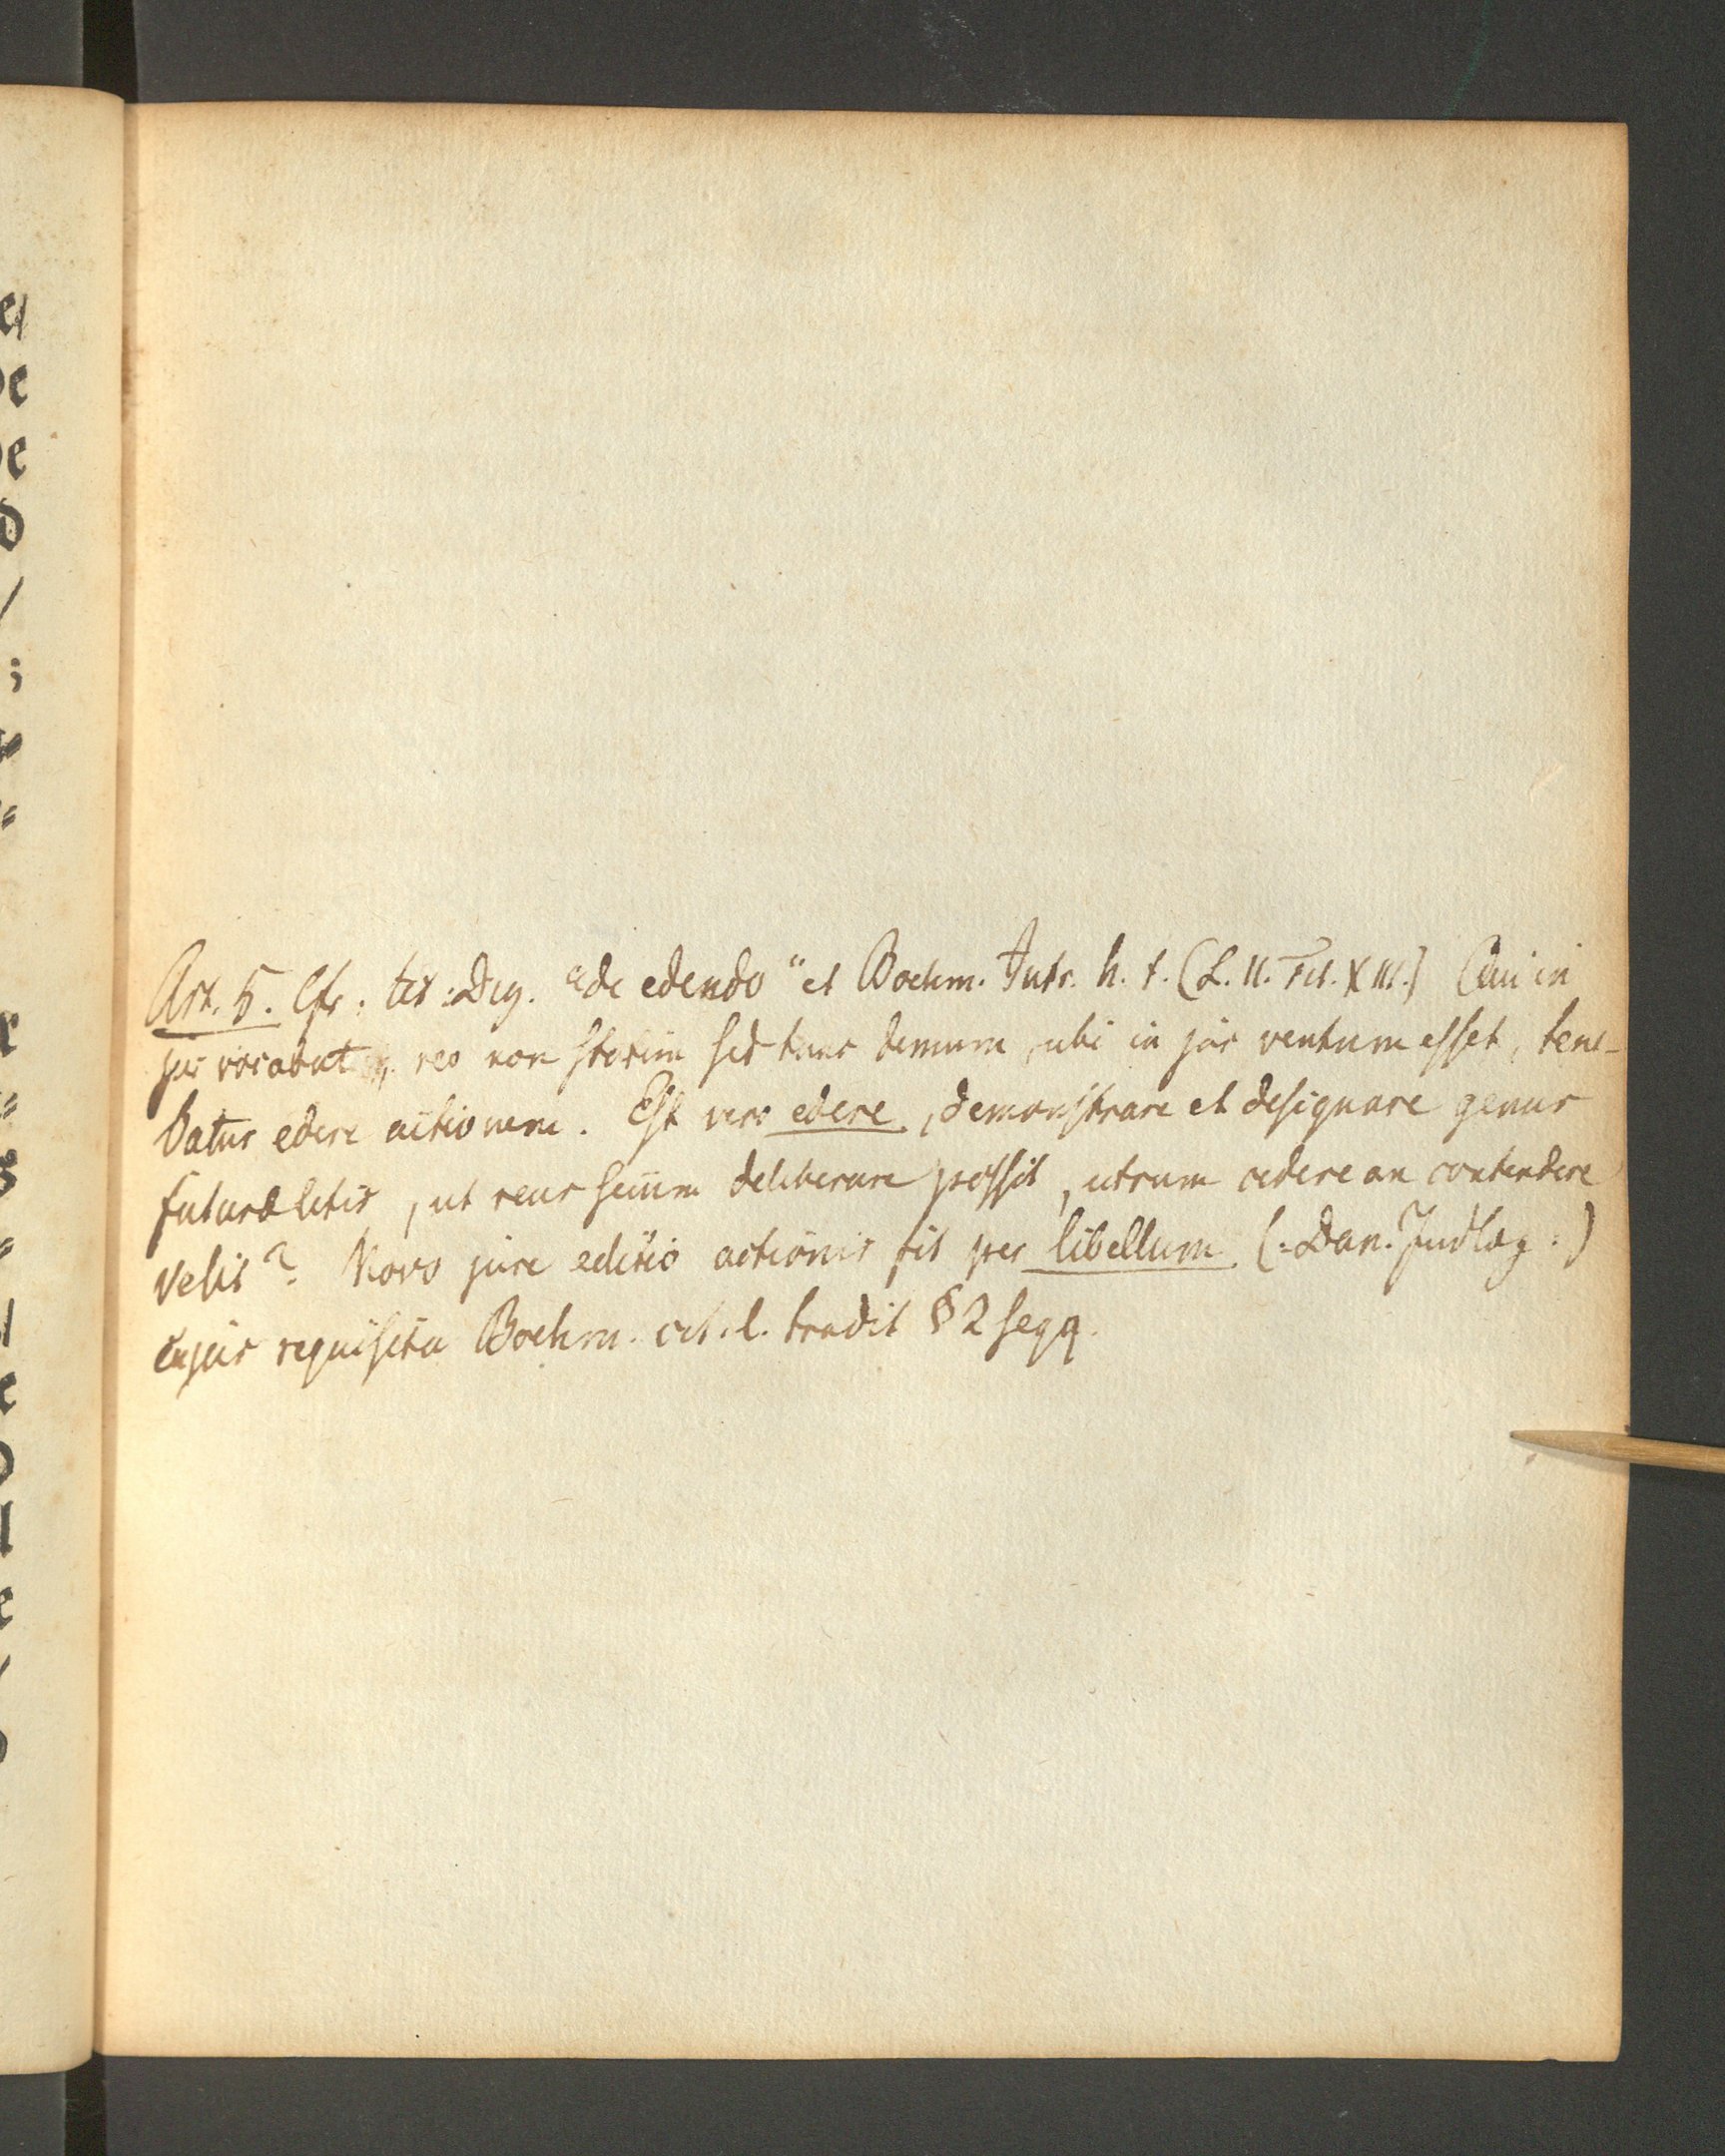 Art. 5. Cfr: tit: Dig. "de edendo" et Boehm. Intr. h. t. (L. II. Tit. XIII.) Qui in
jus vocabat reo non statim sed tunc demum, ubi in jus ventum esset, tene-
batur edere actionem. Est vero edere, demonstrare et designare genus
futuræ litis, ut reus secum deliberare possit, utrum cedere an contendere
velit? Novo jure editio actionis fit per libellum (:Dan. Indlæg:)
cujus requisita Boehm. cit. l. tradit § 2 seqq.